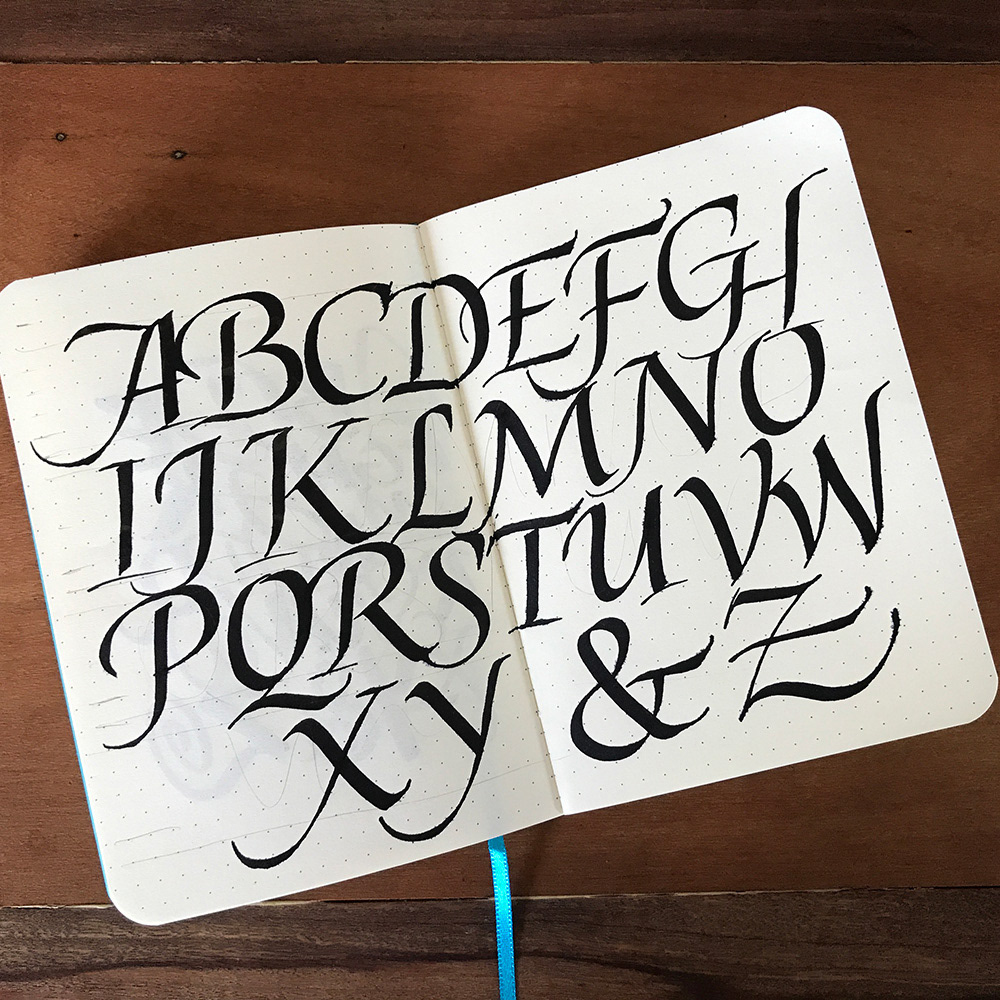 ABCDEFGH
IJKLMNO
PQRSTUVW
XY&Z